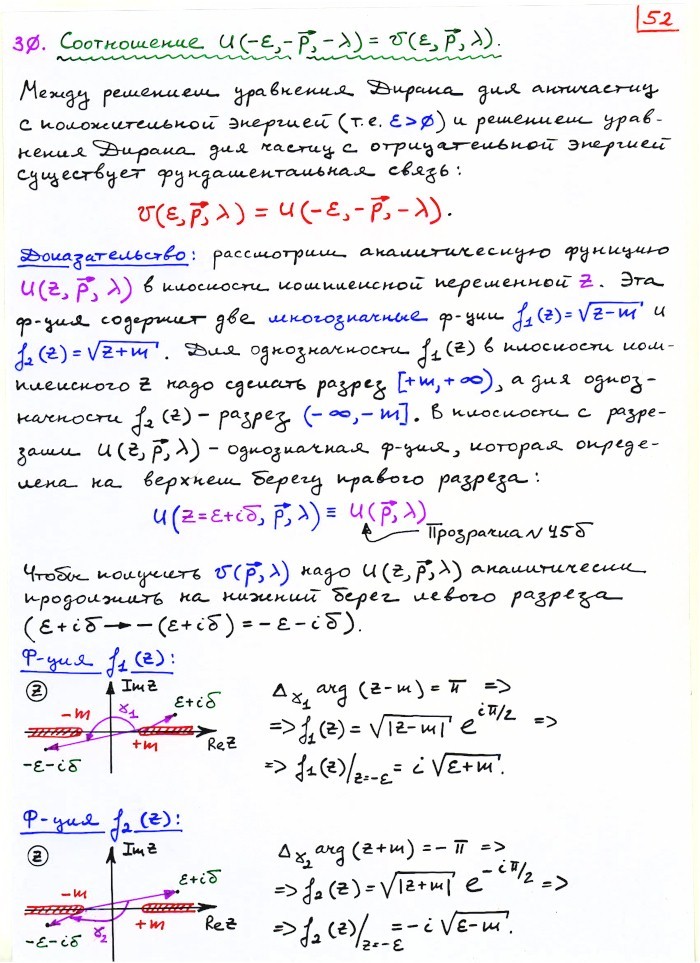 52
30. Соотношение u(-ε,-p⃗,-λ) = v(ε,p⃗,λ).
Между решением уравнения Дирака для античастиц
с положительной энергией (т.е. ε>0) и решением урав-
нения Дирака для частиц с отрицательной энергией
существует фундаментальная связь:
v(ε,p⃗,λ) = u(-ε,-p⃗,-λ).
Доказательство: рассмотрим аналитическую функцию
u(z,p⃗,λ) в плоскости комплексной переменной z. Эта
ф-ция содержит две многозначные ф-ции f₁(z)=√(z-m) и
f₂(z)=√(z+m). Для однозначности f₁(z) в плоскости ком-
плексного z надо сделать разрез [+m,+∞), а для одноз-
начности f₂(z) – разрез (-∞,-m]. В плоскости с разре-
зами u(z,p⃗,λ) – однозначная ф-ция, которая опреде-
лена на верхнем берегу правого разреза:
u(z=ε+iδ,p⃗,λ) ≡ u(p⃗,λ)
Прозрачка N 45б
Чтобы получить v(p⃗,λ) надо u(z,p⃗,λ) аналитически
продолжить на нижний берег левого разреза
(ε+iδ → -(ε+iδ) = -ε-iδ).
Ф-ция f₁(z):
z Im z ε+iδ
-m γ₁ +m Re z
-ε-iδ
Δγ₁ arg(z-m) = π =>
=> f₁(z) = √|z-m| e^{iπ/2} =>
=> f₁(z)/z=-ε = i √(ε+m).
Ф-ция f₂(z):
z Im z ε+iδ
-m γ₂ +m Re z
-ε-iδ
Δγ₂ arg(z+m) = -π =>
=> f₂(z) = √|z+m| e^{-iπ/2} =>
=> f₂(z)/z=-ε = -i √(ε-m).